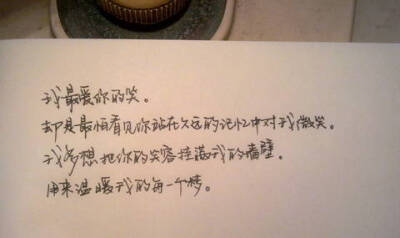 我最爱你的笑。
却是最怕看见你站在久远的记忆中对我微笑。
我多想把你的笑容挂满我的墙壁。
用来温暖我的每一个梦。